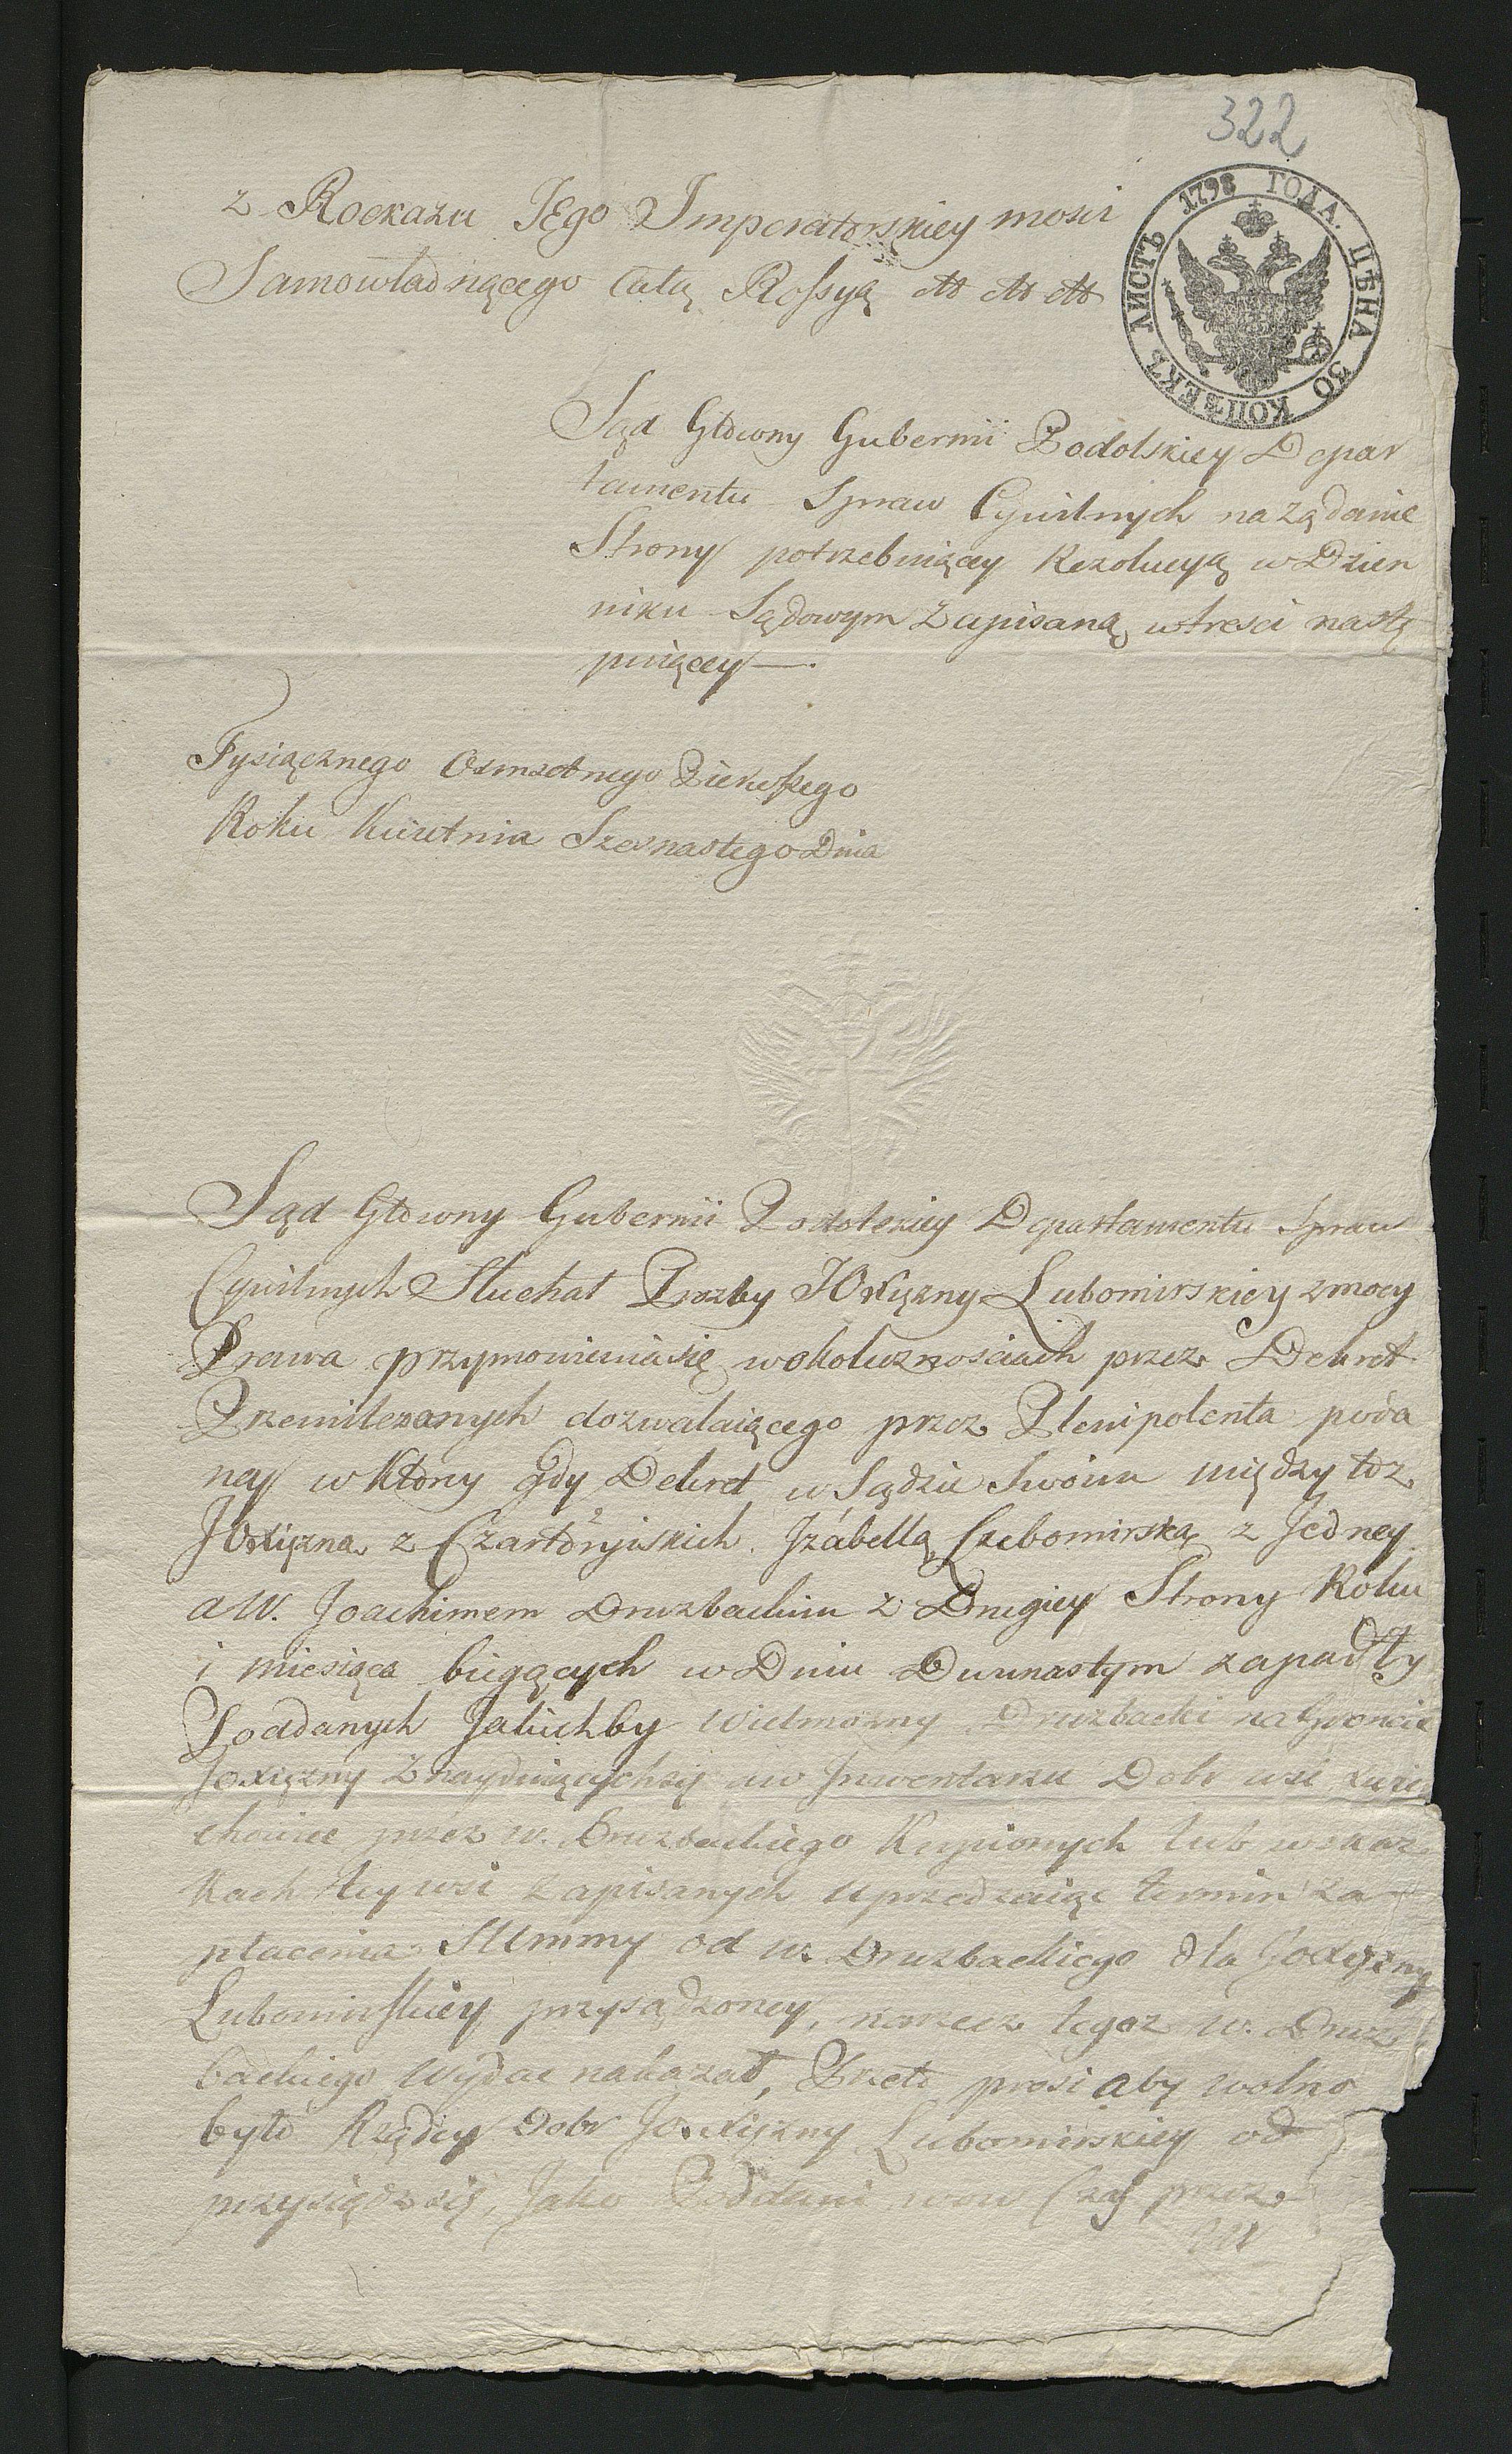 322
1798 ГОДА. ЦѢНА 30 КОПѢЕКЪ ЛИСТЪ
z Rozkazu JEgo Imperatorskiey mosci
Samowładnącego Całą Rossyą etc etc etc
Sąd Głowny Gubernii Podolskiey Depar
tamentu Spraw Cywilnych na żądanie
Strony potrzebuiącey Rezolucyą w Dzien
niku Sądowym Zapisaną w tresci nastę
puiącey —.
Tysiącznego Osmsetnego Pierwszego
Roku Kwietnia Szesnastego Dnia
Sąd Głowny Gubernii Podolskiey Departamentu Spraw
Cywilnych Słuchał Prozby JOXiężny Lubomirskiey z mocy
Prawa przymowienia się w okolicznosciach przez Dekret
Przemilczanych dozwalaiącego przez Plenipotenta poda
ney w ktory gdy Dekret w Sądzie Swoim między toż
JOXiężną z Czartoryiskich Izabellą Lubomirską z Jedney
a W. Joachimem Druzbackim z Drugiey Strony Roku
i miesiąca biegących w Dniu Dwunastym zapadły
Poddanych Jakichby Wielmozny Druzbacki na Groncie
JOXiężny Znayduiących się a w Inwentarzu Dobr wsi
przez W. Druzbackiego Kupionych lub w skaz
kach tey wsi Zapisanych uprzedzaiąc termin za
płacenia Summy od W. Druzbackiego dla JOXiężny
Lubomirskiey przysądzoney, narzecz tegoz W. Druz
backiego wydac nakazał, Przeto prosi aby wolno
było Rządcy Dobr JOXiężny Lubomirskiey od
przysiądz się, Jako Poddani wow Czas przez